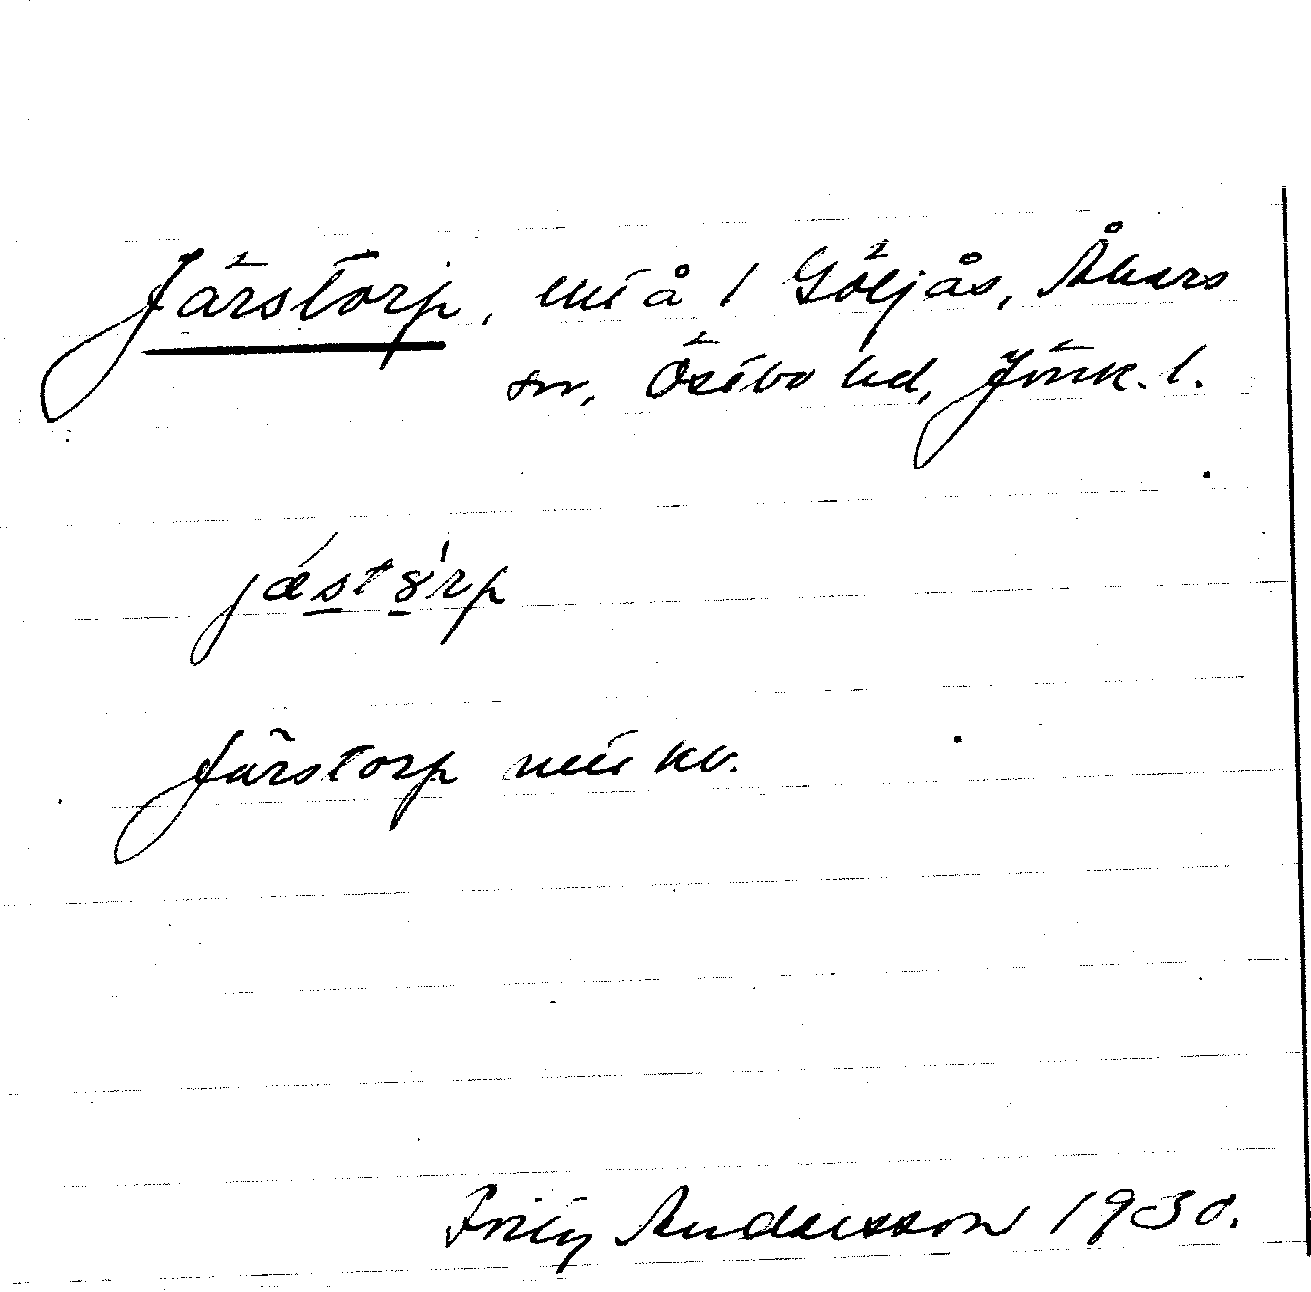 Järstorp, uti å 1 Göljås, Åkers
sn, Östbo hd, Jönk. l.
jæstɔrp
Järstorp uti kv.
Andersson 1930.